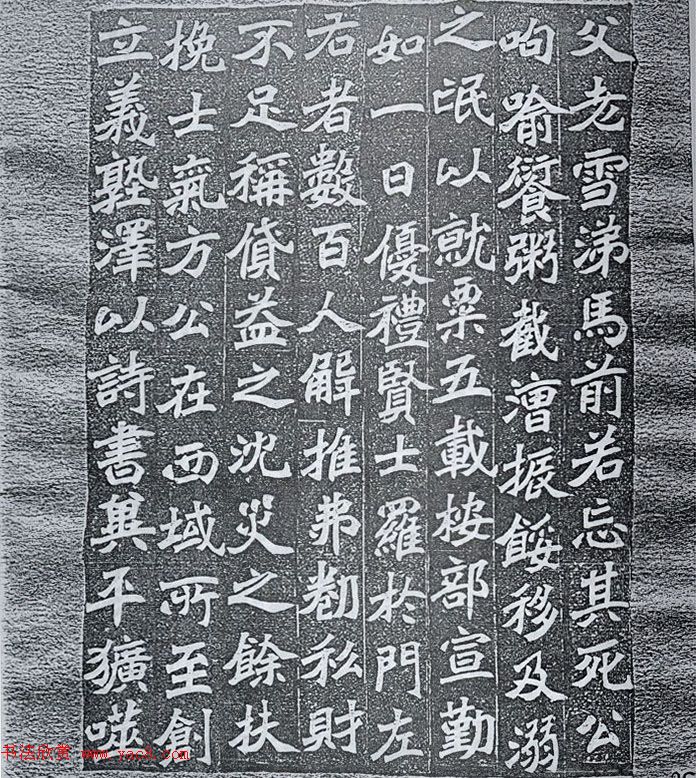 父老雪涕馬前若忘其死公
呴喻饔粥截漕振餒移及溺
之氓以就粟五載按部宣勤
如一日優禮賢士羅於門左
右者數百人解推弗勌私財
不足稱貸益之沈災之餘扶
挽士氣方公在西域所至創
立義塾澤以詩書冀平獷噬
书法欣赏 www.yac8.com